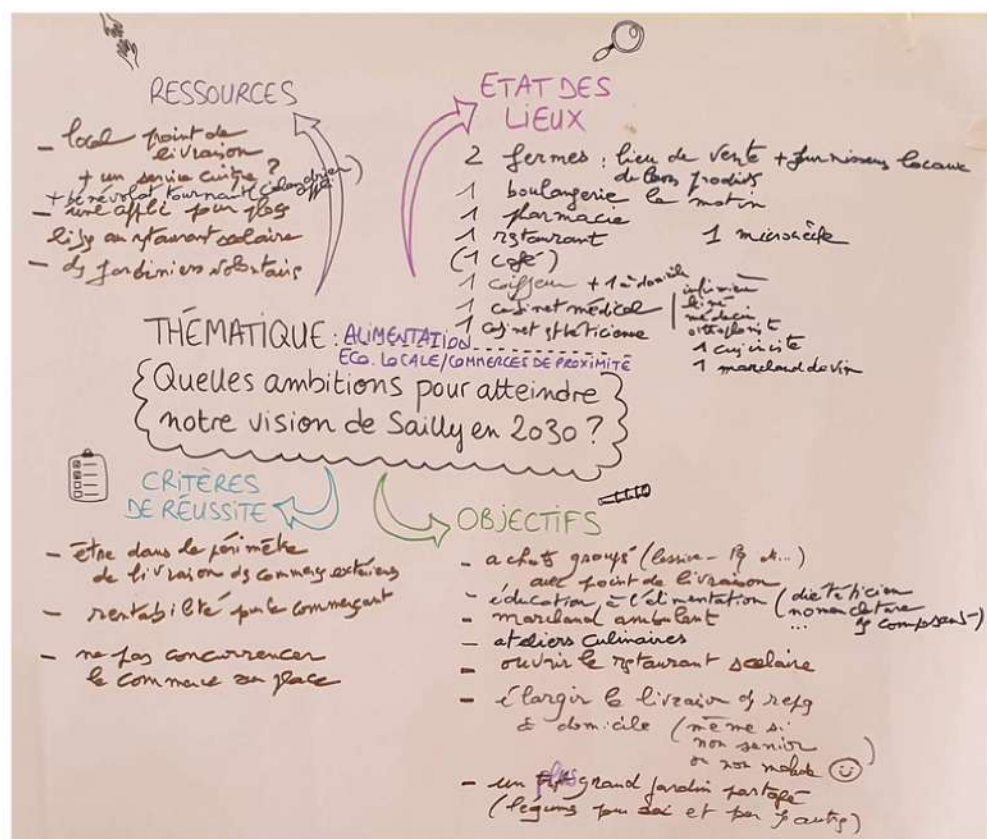 RESSOURCES
- local point de
livraison
+ un service cintre ?
+ bénévolat tournant (calendrier
appli)
- une appli pour places
libres au restaurant scolaire
- des jardiniers volontaires
ETAT DES
LIEUX
2 fermes : lieu de vente + fournisseurs locaux
de leurs produits
1 boulangerie le matin
1 pharmacie
1 restaurant
1 microcrèche
(1 café)
1 coiffeur + 1 à domicile
1 cabinet médical
infirmière
kiné
médecin
orthophoniste
1 cabinet esthéticienne
1 cuisiniste
1 marchand de vin
THÉMATIQUE : ALIMENTATION
ECO. LOCALE/COMMERCES DE PROXIMITÉ
Quelles ambitions pour atteindre
notre vision de Sailly en 2030 ?
CRITÈRES
DE RÉUSSITE
- être dans le périmètre
de livraison des commerces extérieurs
- rentabilité pour le commerçant
- ne pas concurrencer
le commerce en place
OBJECTIFS
- achats groupés (lessive -
avec point de livraison
- éducation à l'alimentation (diététicien
nomenclature
... des composants)
- marchand ambulant
- ateliers culinaires
- ouvrir le restaurant scolaire
- élargir la livraison des repas
à domicile (même si
non senior
ou non malade)
- un plus grand jardin partagé
(légumes pour soi et pour les autres)